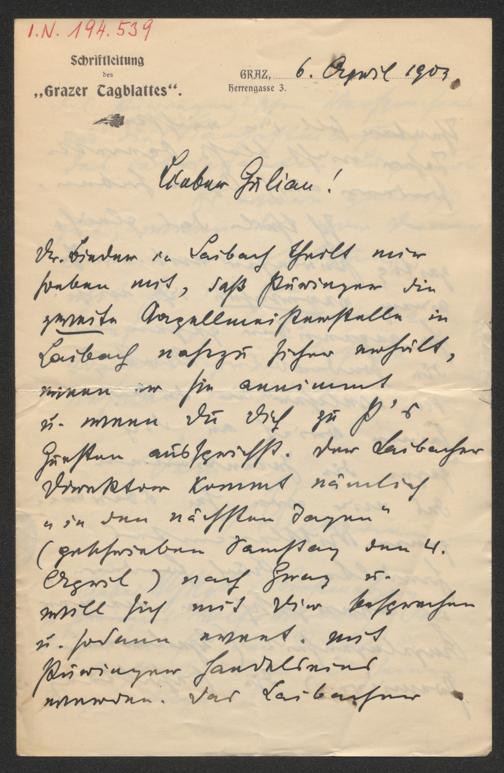 I.N. 194.539
Schriftleitung
des
„Grazer Tagblattes“.
GRAZ, 6. April 1903.
Herrengasse 3.
Lieber Julian!
Dr. Binder in Laibach theilt mir
soeben mit, daß Püringer die
zweite Capellmeisterstelle in
Laibach nahezu sicher erhält,
wenn er sie annimmt
u. wenn Du Dich zu P's
Gunsten aussprichst. Der Laibacher
Direktor kommt nämlich
„in den nächsten Tagen“
(geschrieben Samstag den 4.
April) nach Graz u.
will sich mit Dir besprechen
u. sodann event. mit
Püringer handelseins
werden. Das Laibacher